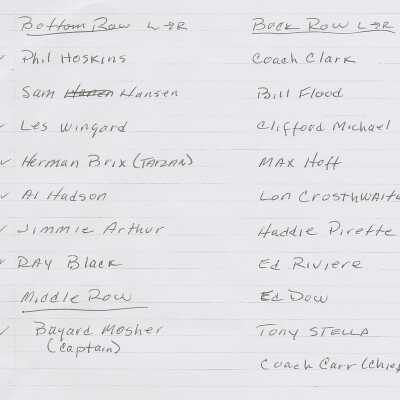 Bottom Row L → R
Phil Hoskins
Sam Hansen Hansen
Les Wingard
Herman Brix (TARZAN)
Al Hudson
Jimmie Arthur
RAY Black
Middle Row
Bayard Mosher
(captain)
Back Row L → R
Coach Clark
Bill Flood
Clifford Michael
MAX Hoft
Lon Crosthwaite
Haddie Pirette
Ed Riviere
Ed Dow
TONY STELLA
Coach Carr (Chief